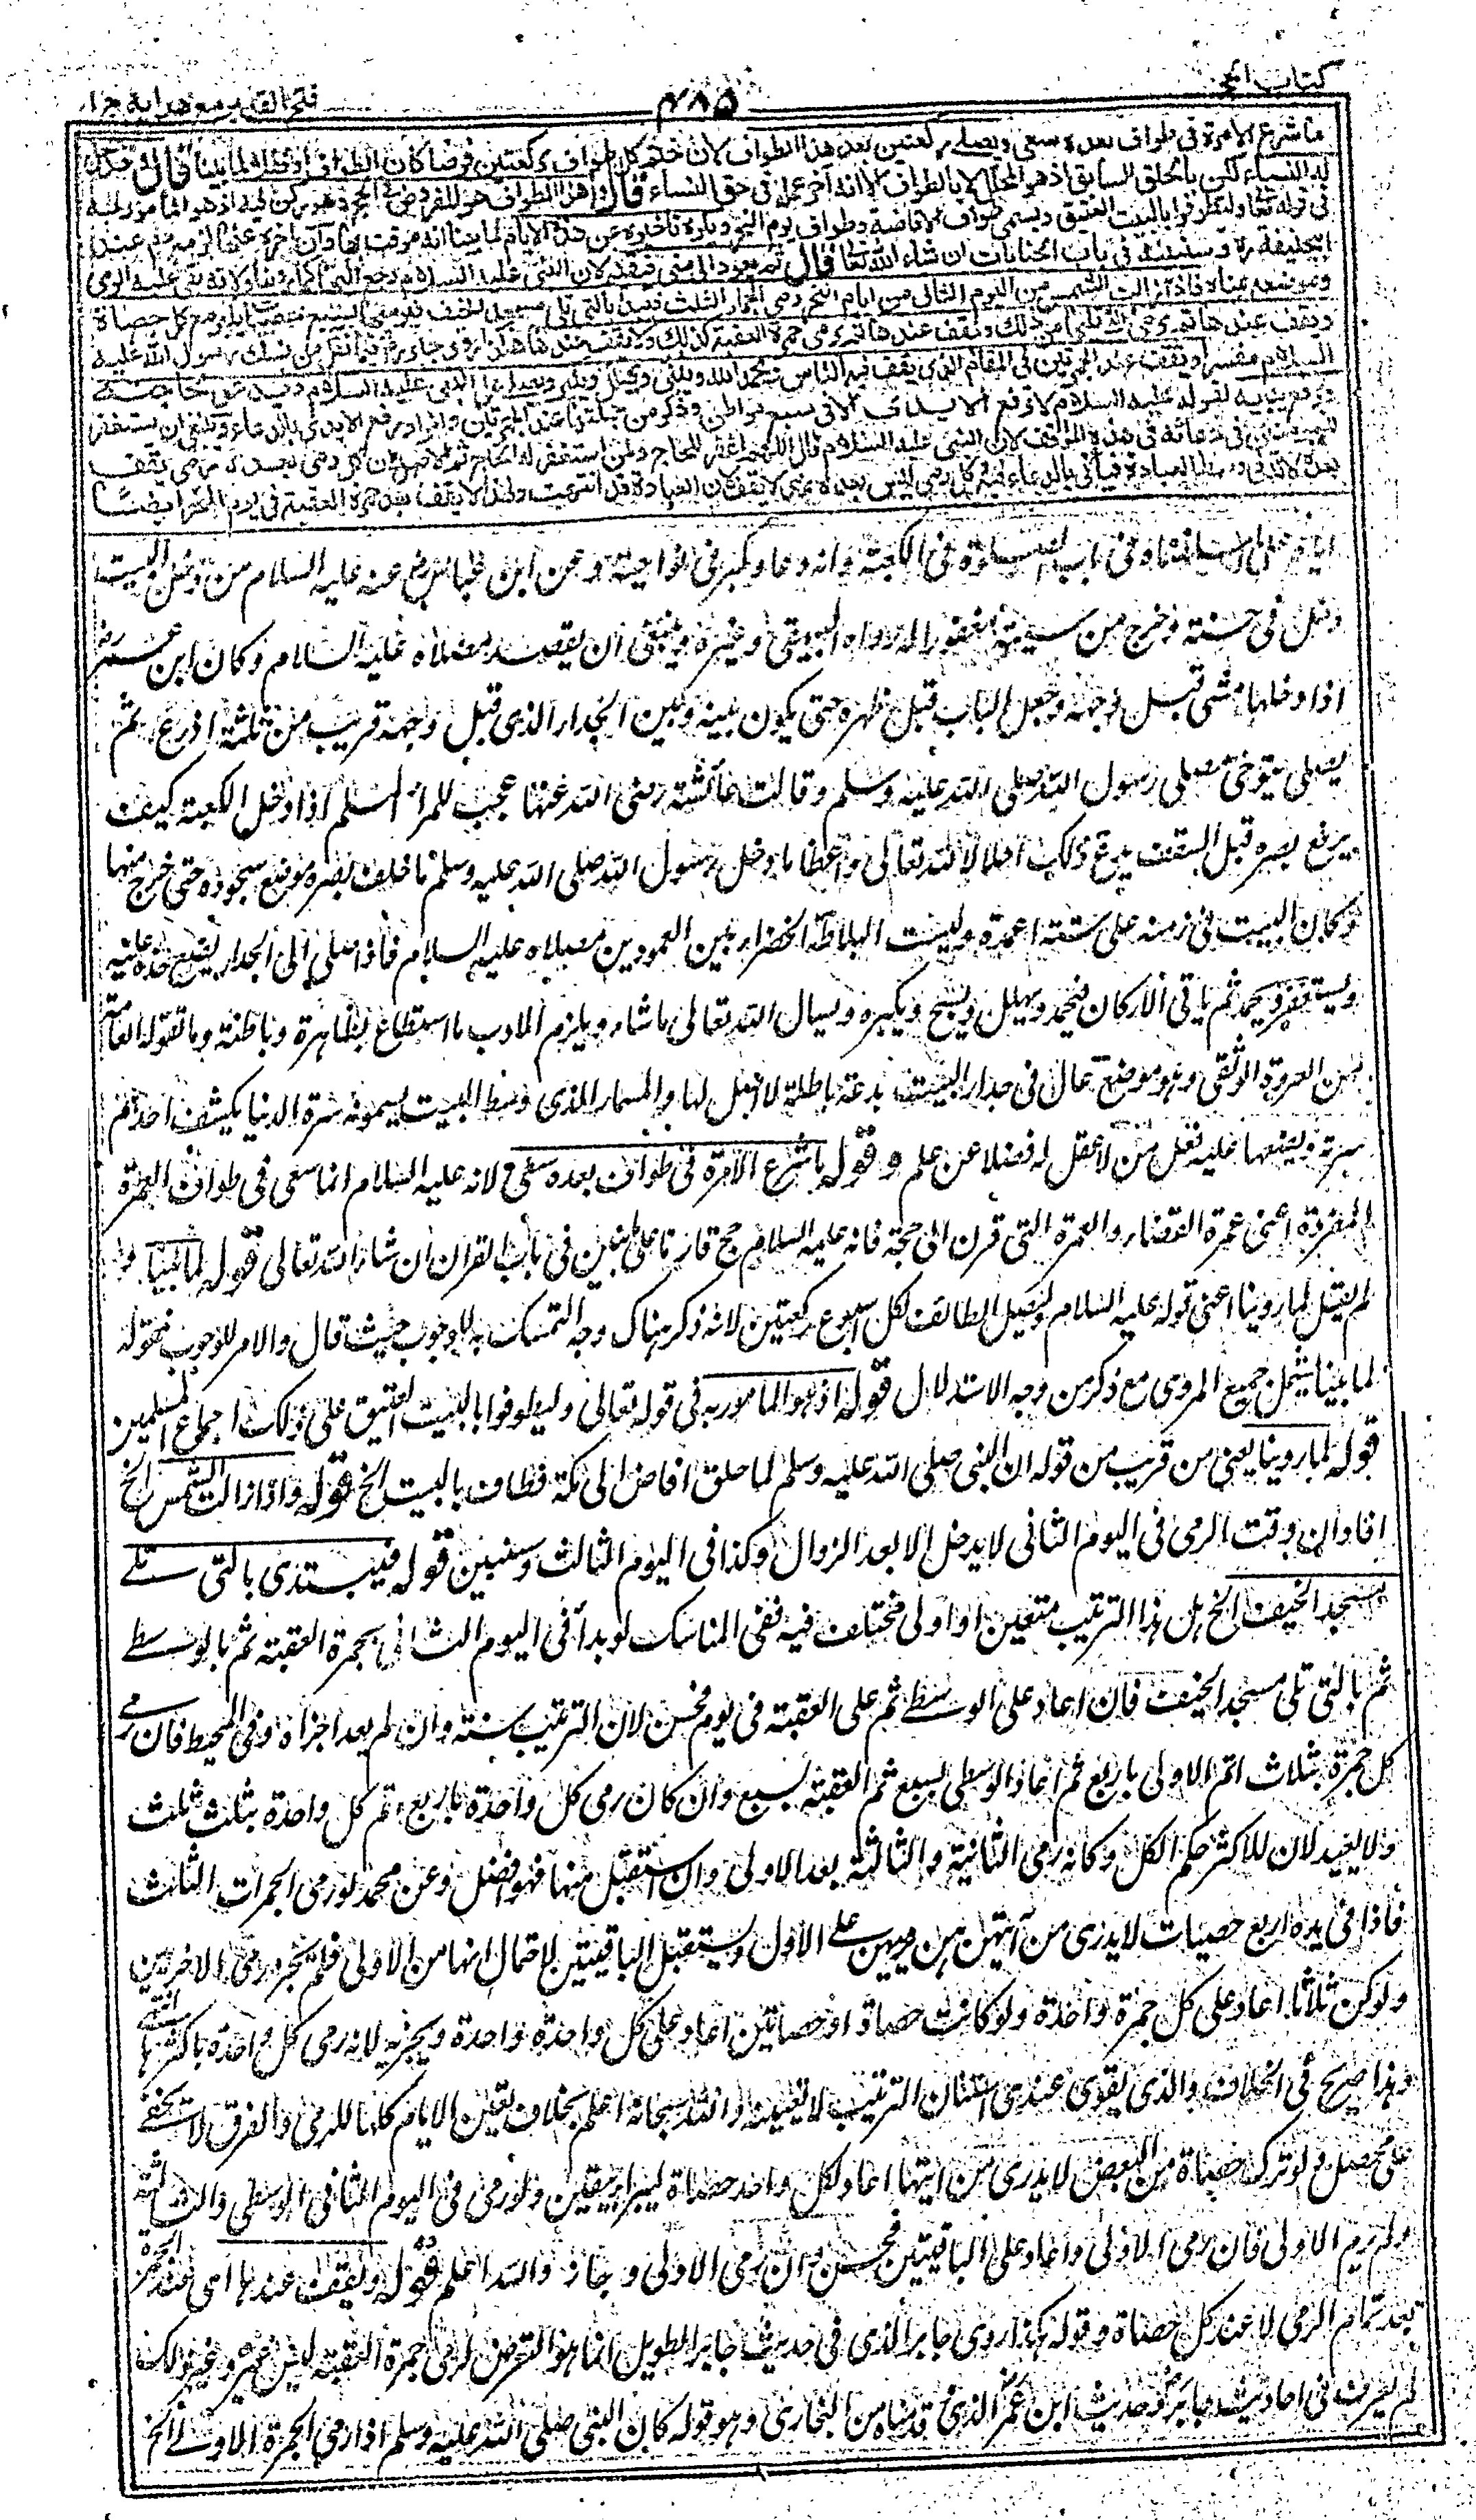 كتاب الحج
٤٨٥
فتح القدير مع هداية ج ١
ما شرع الا مرة في طواف بعده سعي ويصلي ركعتين بعد هذا الطواف لان ختم كل طواف بركعتين فرضا كان الطواف او نفلا لما بينا قال وقد حل
له النساء لكن بالحلق السابق اذ هو المحلل لا بالطواف الا انه اخر عمله في حق النساء قال وهذا الطواف هو المفروض في الحج وهو ركن فيه اذ هو المأمور به
في قوله تعالى وليطوفوا بالبيت العتيق ويسمى طواف الافاضة وطواف يوم النحر ويكره تأخيره عن هذه الايام لما بينا انه موقت بها وان اخره عنها لزمه دم عند
ابي حنيفة رح وسنبينه في باب الجنايات ان شاء الله تعالى قال ثم يعود الى منى فيقيم لان النبي عليه السلام رجع اليها كما روينا ولانه بقي عليه الرمي
وموضعه بمنى فاذا زالت الشمس من اليوم الثاني من ايام النحر رمى الجمار الثلث فيبدأ بالتي تلي مسجد الخيف فيرميها بسبع حصيات يكبر مع كل حصاة
ويقف عندها ثم يرمي التي تليها مثل ذلك ويقف عندها ثم يرمي جمرة العقبة كذلك ولا يقف عندها هكذا روى جابر رض فيما نقل من نسك رسول الله عليه
السلام مفسرا ويقف عند الجمرتين في المقام الذي يقف فيه الناس ويحمد الله ويثني ويهلل ويكبر ويصلي على النبي عليه السلام ويدعو بحاجته
ويرفع يديه لقوله عليه السلام لا ترفع الايدي الا في سبع مواطن وذكر من جملتها عند الجمرتين والمراد رفع الايدي بالدعاء وينبغي ان يستغفر
للمؤمنين في دعائه في هذه المواقف لان النبي عليه السلام قال اللهم اغفر للحاج ولمن استغفر له الحاج ثم الاصل ان كل رمي بعده رمي يقف
بعده لانه في وسط العبادة فيأتي بالدعاء فيه وكل رمي ليس بعده رمي لا يقف لان العبادة قد انتهت ولهذا لا يقف بعد جمرة العقبة في يوم النحر ايضا
في الكعبة وانه دعا وكبر في نواحيه وعن ابن عباس رض عنه عليه السلام من دخل البيت
دخل في حسنة وخرج من سيئة مغفورا له رواه البيهقي وغيره وينبغي ان يقصد مصلاه عليه السلام وكان ابن عمر رض
اذا دخلها مشى قبل وجهه وجعل الباب قبل ظهره حتى يكون بينه وبين الجدار الذي قبل وجهه قريب من ثلثة اذرع ثم
يصلي يتوخى مصلى رسول الله صلى الله عليه وسلم وقالت عائشة رضي الله عنها عجب للمرأ المسلم اذا دخل الكعبة كيف
يرفع بصره قبل السقف يدع ذلك اجلالا لله تعالى واعظاما دخل رسول الله صلى الله عليه وسلم ما خلف بصره موضع سجوده حتى خرج منها
وكان البيت في زمنه على ستة اعمدة وليست البلاطة الخضراء بين العمودين مصلاه عليه السلام فاذا صلى الى الجدار يضع خده عليه
ويستغفر ويحمد ثم ياتي الاركان فيحمد ويهلل ويسبح ويكبر ويسأل الله تعالى ما شاء ويلزم الادب ما استطاع بظاهره وباطنه وما تقوله العامة
من العروة الوثقى وهو موضع عال في جدار البيت بدعة باطلة لا اصل لها والمسمار الذي وسط البيت يسمونه سرة الدنيا يكشف احدهم
سرته ويضعها عليه فعل من لا عقل له فضلا عن علم وقوله ما شرع الا مرة في طواف بعده سعي لانه عليه السلام انما سعى في طواف العمرة
المفردة اعني عمرة القضاء والعمرة التي قرن الى حجته فانه عليه السلام حج قارنا على ما نبين في باب القران ان شاء الله تعالى قوله لما بينا
لم يقل لما روينا اعني قوله عليه السلام ليصل الطائف لكل اسبوع ركعتين لانه ذكر هناك وجه التمسك به للوجوب حيث قال والامر للوجوب فقوله
لما بينا يشمل جميع المروي مع ذكر من وجه الاستدلال قوله اذ هو المأمور به في قوله تعالى وليطوفوا بالبيت العتيق على ذلك اجماع المسلمين
قوله لما روينا يعني من قريب من قوله ان النبي صلى الله عليه وسلم لما حلق افاض الى مكة فطاف بالبيت الخ قوله واذا زالت الشمس الخ
افاد ان وقت الرمي في اليوم الثاني لا يدخل الا بعد الزوال وكذا في اليوم الثالث وسنبين قوله فيبتدئ بالتي تلي
مسجد الخيف الخ هل هذا الترتيب متعين او اولى مختلف فيه ففي المناسك لو بدأ في اليوم الثاني بجمرة العقبة ثم بالوسطى
ثم بالتي تلي مسجد الخيف فان اعاد على الوسطى ثم على العقبة في يومه فحسن لان الترتيب سنة وان لم يعد اجزاه وفي المحيط فان رمى
كل جمرة بثلاث اتم الاولى باربع ثم اعاد الوسطى بسبع ثم العقبة بسبع وان كان رمى كل واحدة باربع اتم كل واحدة بثلث ثلث
ولا يعيد لان للاكثر حكم الكل وكانه رمى الثانية والثالثة بعد الاولى وان استقبل منها فهو افضل وعن محمد لو رمى الجمرات الثلث
فاذا في يده اربع حصيات لا يدرى من ايتهن هن يرميهن على الاول ويستقبل الباقيتين لاحتمال انها من الاولى فلم يجز رمي الاخريين
ولو كن ثلاثا اعاد على كل جمرة واحدة ولو كانت حصاة او حصاتين اعاد على كل واحدة واحدة ويجزيه لانه رمى كل واحدة باكثرها انتهى
وهذا صريح في الخلاف والذي يقوى عندي استنان الترتيب لا تعيينه والله سبحانه اعلم بخلاف تعين الايام كلها للرمي والفرق لا يخفى
على محصل ولو ترك حصاة من البعض لا يدرى من ايتها اعاد لكل واحد حصاة ليبرأ بيقين ولو رمى في اليوم الثاني الوسطى والثالثة
ولم يرم الاولى فان رمى الاولى واعاد على الباقيتين فحسن وان رمى الاولى وجاز والله اعلم قوله ويقف عندها اي عند الجمرة
بعد تمام الرمي لا عند كل حصاة وقوله هكذا روى جابر الذي في حديث جابر الطويل انما هو التعرض لرمي جمرة العقبة ليس غير وغير ذلك
لم يعرف في احاديث جابر وحديث ابن عمر الذي قدمناه من البخاري وهو قوله كان النبي صلى الله عليه وسلم اذا رمى الجمرة الاولى الخ